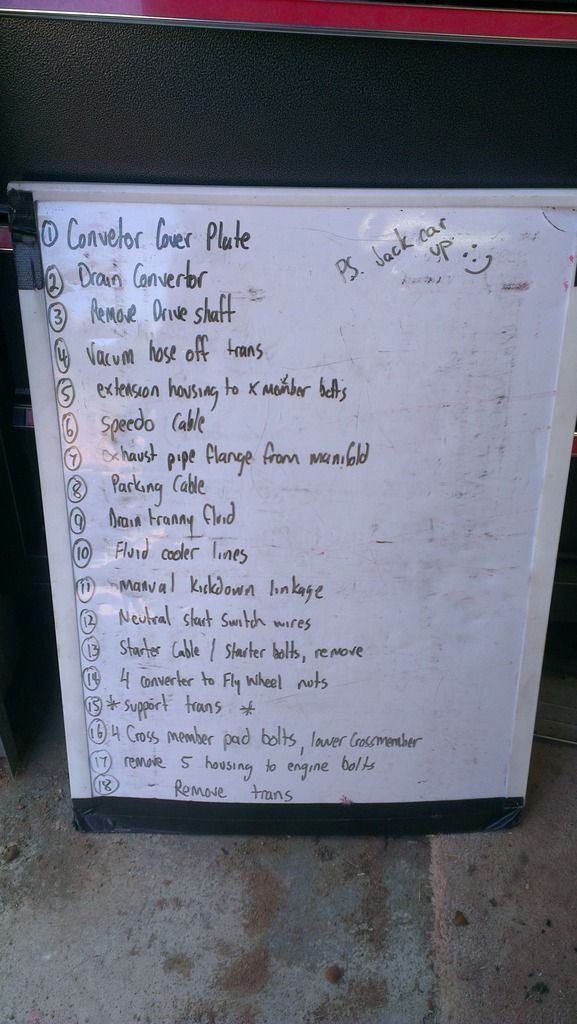 ① Convetor Cover Plate
PS. Jack car
up :)
② Drain Convertor
③ Remove Drive shaft
④ Vacum hose off trans
⑤ extension housing to x member bolts
⑥ Speedo Cable
⑦ exhaust pipe flange from manifold
⑧ Parking Cable
⑨ Drain tranny fluid
⑩ Fluid cooler lines
⑪ manual kickdown linkage
⑫ Neutral start switch wires
⑬ Starter Cable / Starter bolts, remove
⑭ 4 converter to Fly Wheel nuts
⑮ * support trans *
⑯ 4 Cross member pad bolts, lower Crossmember
⑰ remove 5 housing to engine bolts
⑱ Remove trans